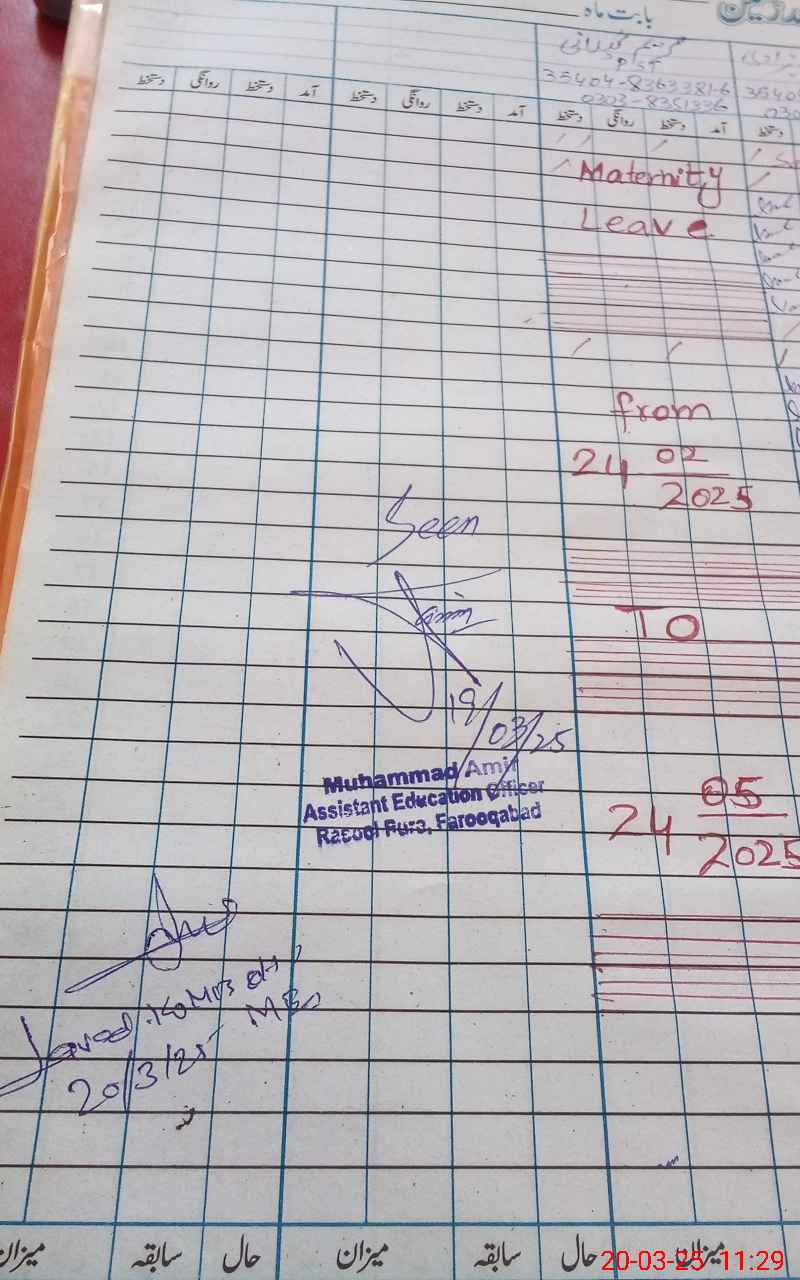 بابت ماہ
مریم گیلانی
PST
35404-8363381-6
0303-8351336
آمد دستخط روانگی دستخط آمد دستخط روانگی دستخط آمد دستخط روانگی دستخط
Maternity
Leave
from
24 02
2025
TO
24 05
2025
Seen
Amin
19/03/25
Muhammad Amin
Assistant Education Officer
Rasool Pura, Farooqabad
20/3/25
میزان حال سابقہ میزان حال سابقہ میزان
20-03-25 11:29